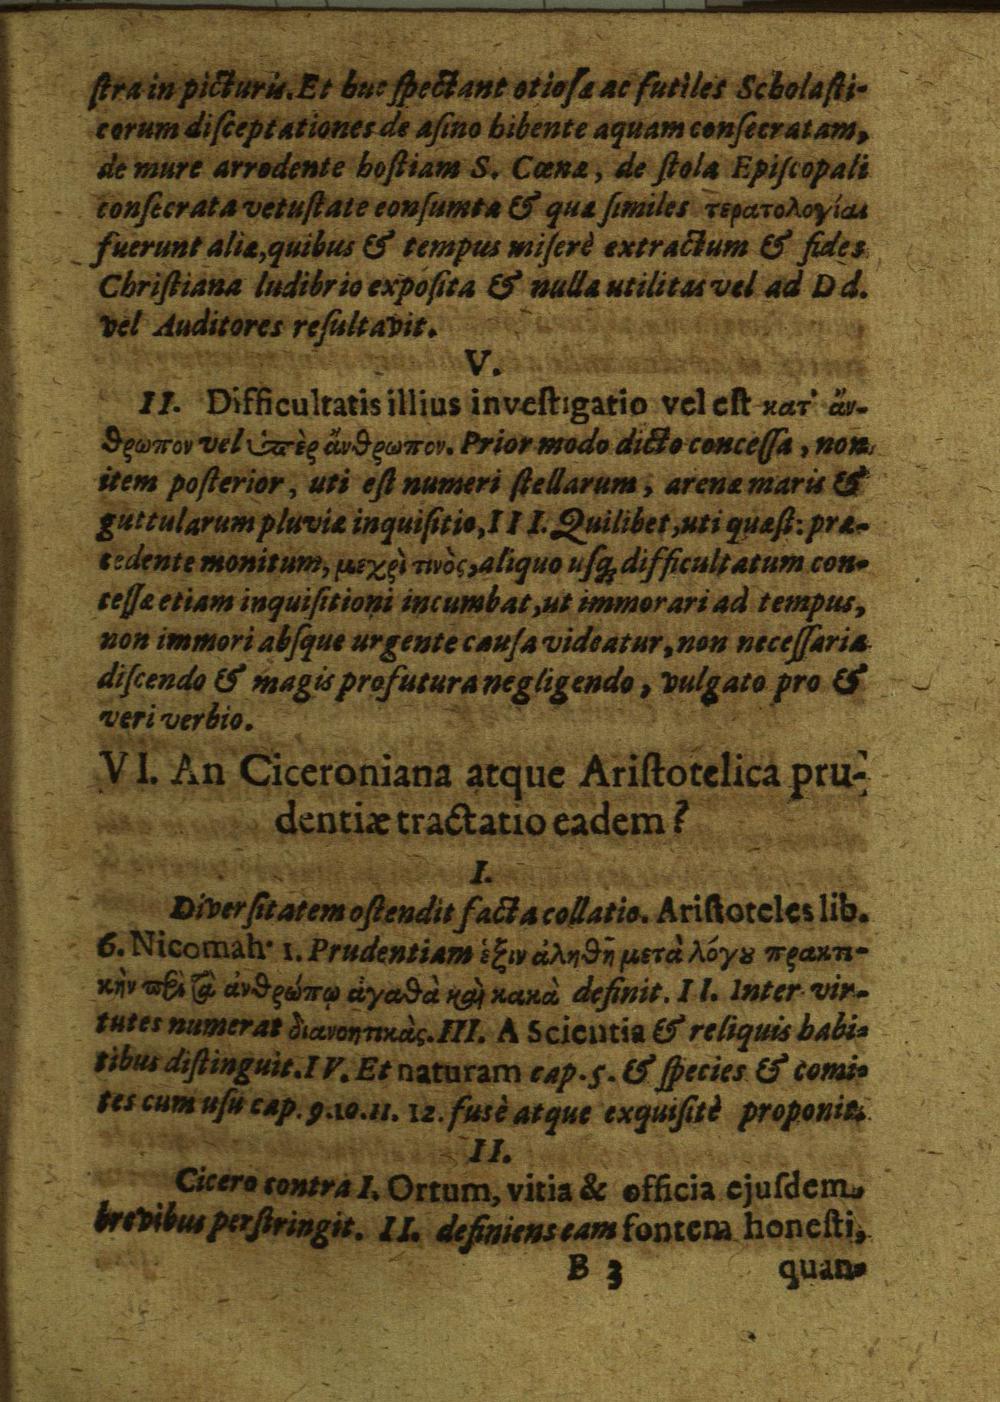 ſtra in picturis. Et huc ſpectant otioſæ ac futiles Scholaſti-
corum diſceptationes de aſino bibente aquam conſecratam,
de mure arrodente hoſtiam S. Cœnæ, de ſtola Epiſcopali
conſecrata vetuſtate conſumta & quæ ſimiles τερατολογίαι
fuerunt aliæ, quibus & tempus miſerè extractum & fides
Chriſtiana ludibrio expoſita & nulla utilitas vel ad Dd.
vel Auditores reſultavit.
V.
II. Difficultatis illius inveſtigatio vel eſt κατ' ἄν-
θρωπον vel ὑπὲρ ἄνθρωπον. Prior modo dicto conceſſa, non
item poſterior, uti eſt numeri ſtellarum, arenæ maris &
guttularum pluviæ inquiſitio, III. Quilibet, uti quæſt: præ-
cedente monitum, μεχρὶ τινὸς, aliquo uſq; difficultatum con-
ceſſæ etiam inquiſitioni incumbat, ut immorari ad tempus,
non immori abſque urgente cauſa videatur, non neceſſaria
diſcendo & magis profutura negligendo, vulgato pro &
veri verbio.
VI. An Ciceroniana atque Ariſtotelica pru-
dentiæ tractatio eadem?
I.
Diverſitatem oſtendit facta collatio. Ariſtoteles lib.
6. Nicomah. 1. Prudentiam ἑξιν ἀληθῆ μετὰ λόγȣ πρακτι-
κὴν περὶ τὰ ἀνθρώπῳ ἀγαθὰ καὶ κακὰ definit. II. Inter vir-
tutes numerat διανοητικὰς. III. A Scientia & reliquis habi-
tibus diſtinguit. IV. Et naturam cap. 5. & ſpecies & comi-
tes cum uſu cap. 9. 10. 11. 12. fusè atque exquiſitè proponit.
II.
Cicero contra I. Ortum, vitia & officia ejuſdem
brevibus perſtringit. II. definiens eam fontem honeſti,
B 3 quan-